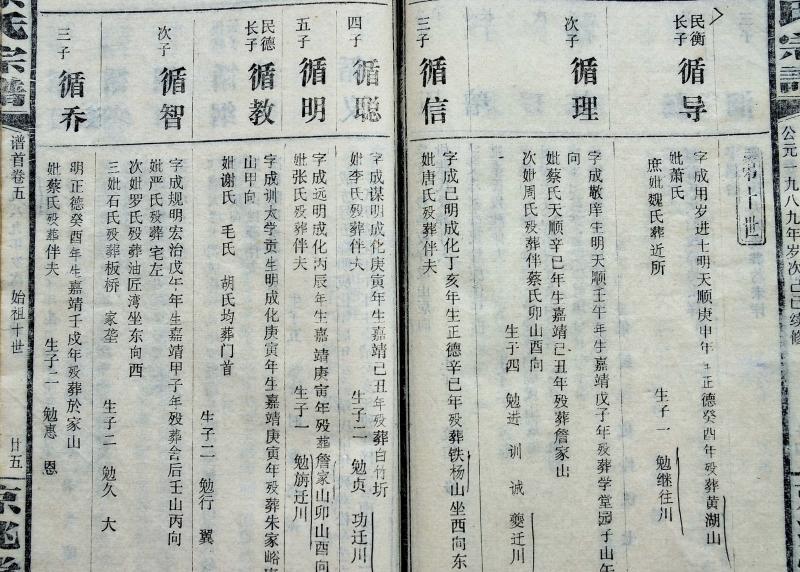 氏宗譜
公元一九八九年岁次己巳续修
第十世
民衡长子 循导
字成用岁进士明天顺庚申年生正德癸酉年殁葬黄湖山
妣萧氏
庶妣魏氏葬近所
生子一 勉继往川
次子 循理
字成敬庠生明天顺壬午年生嘉靖戊子年殁葬学堂园子山午
向
妣蔡氏天顺辛巳年生嘉靖己丑年殁葬詹家山
次妣周氏殁葬伴蔡氏卯山酉向
生子四 勉进 训 诚 夔迁川
三子 循信
字成己明成化丁亥年生正德辛巳年殁葬铁杨山坐西向东
妣唐氏殁葬伴夫
四子 循聪
字成谋明成化庚寅年生嘉靖己丑年殁葬白竹坵
妣李氏殁葬伴夫
生子二 勉贞 功迁川
五子 循明
字成远明成化丙辰年生嘉靖庚寅年殁葬詹家山卯山酉向
妣张氏殁葬伴夫
生子一 勉旃迁川
民德长子 循教
字成训太学贡生明成化庚寅年生嘉靖庚寅年殁葬朱家峪
山甲向
妣谢氏 毛氏 胡氏均葬门首
生子二 勉行 翼
次子 循智
字成规明宏治戊午年生嘉靖甲子年殁葬舍后壬山丙向
妣严氏殁葬宅左
次妣罗氏殁葬油匠湾坐东向西
三妣石氏殁葬板桥 家垄
生子二 勉久 大
三子 循乔
明正德癸酉年生嘉靖壬戌年殁葬於家山
妣蔡氏殁葬伴夫
生子二 勉惠 恩
氏宗譜
谱首卷五
始祖十世
廿五